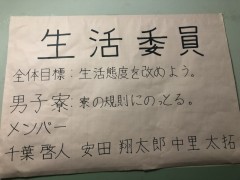 生活委員
全体目標：生活態度を改めよう。
男子寮：寮の規則にのっとる。
メンバー
千葉 啓人 安田 翔太郎 中里 太拓